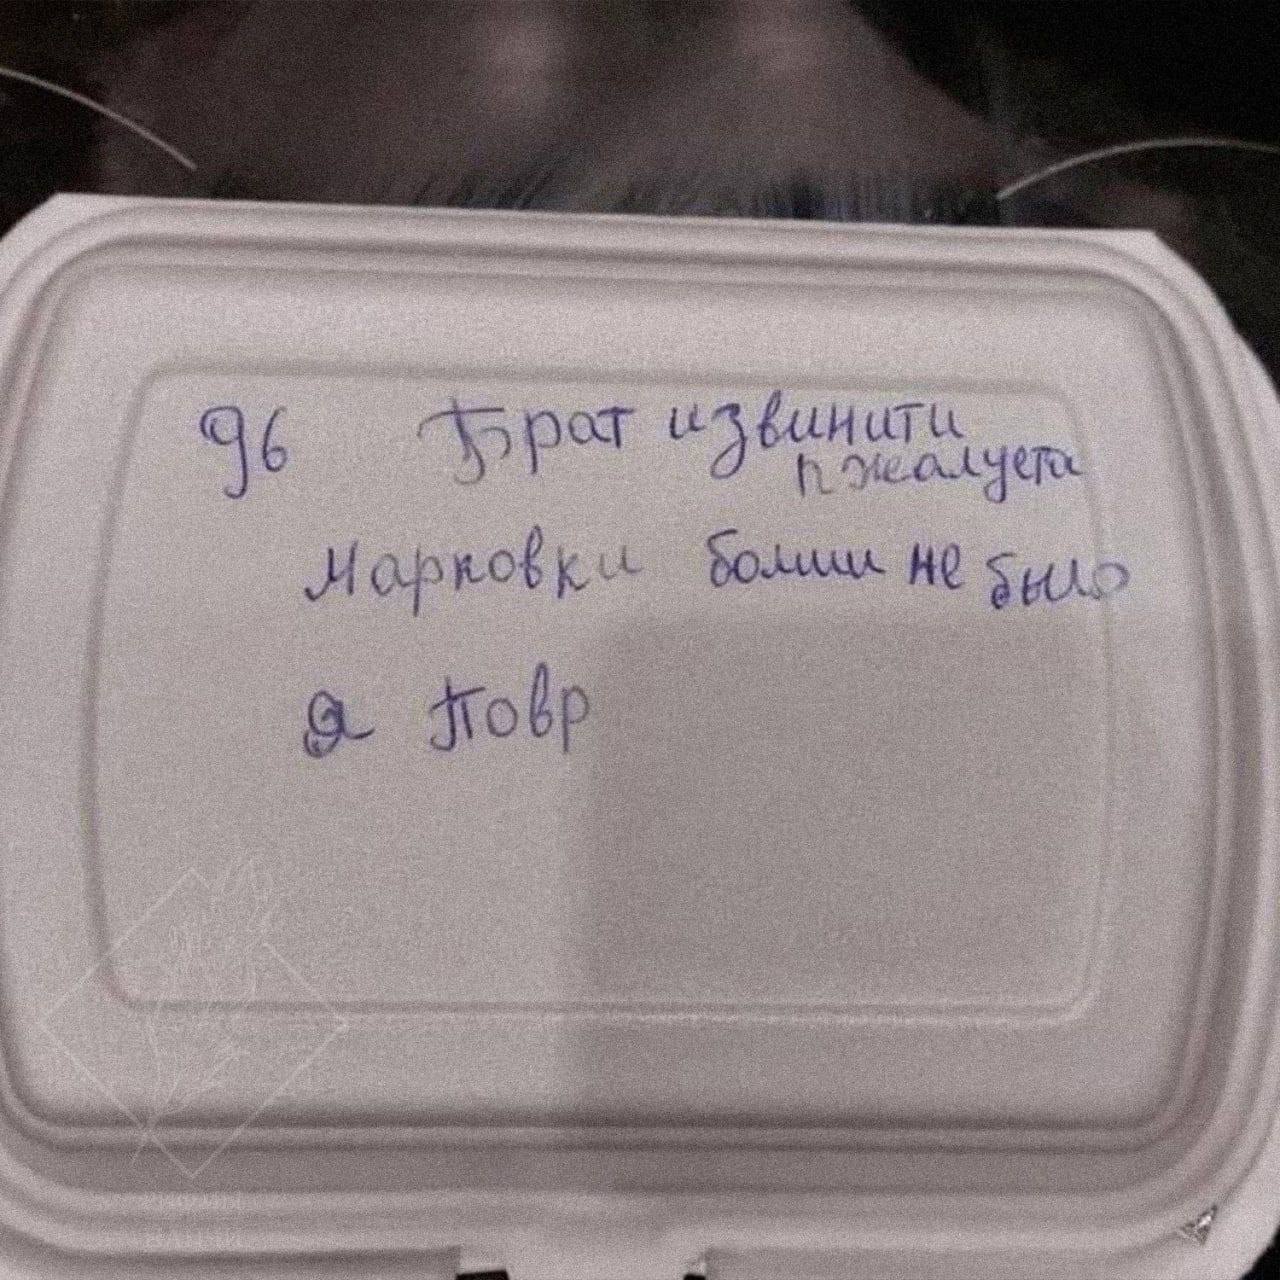 96 Брат извинити
пжалуета
Марковки болши не было
я Повр